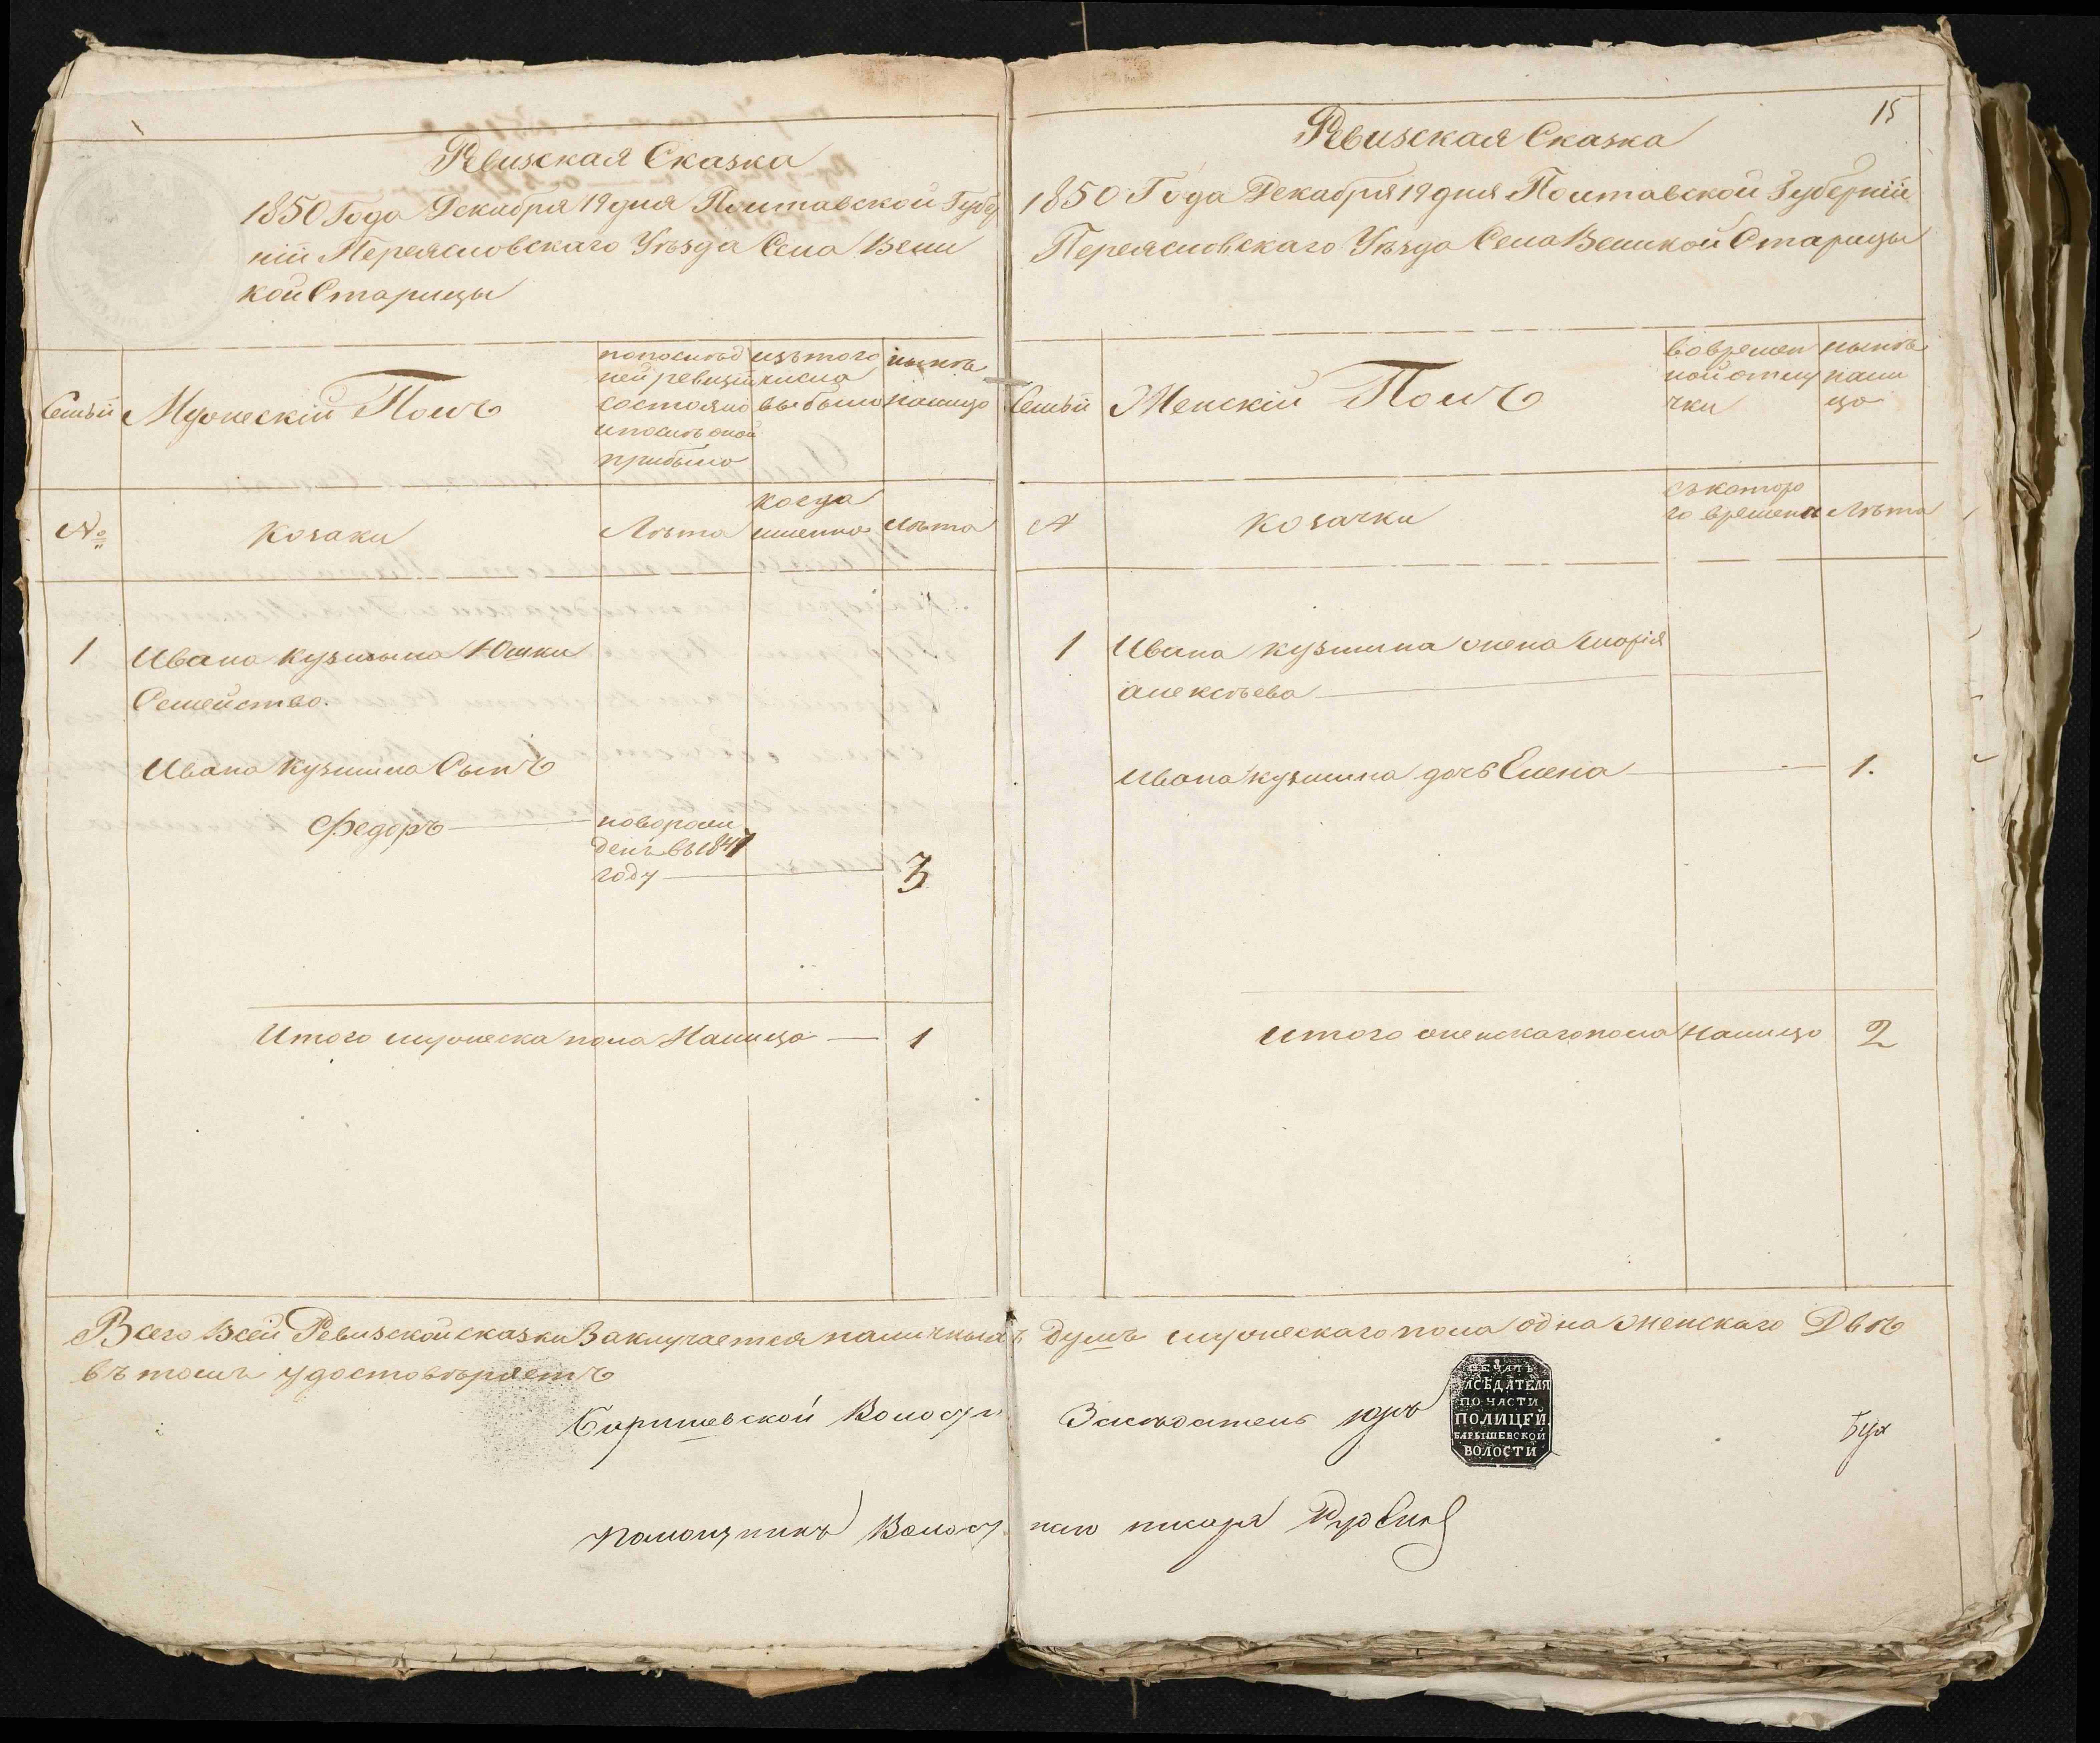 Ревизская Сказка
1850 Года Декабря 19 дня Полтавской Губер
ніи Переясловскаго Уѣзда Села Вели
кой Старицы
Семьи
Мужескій Полъ
по послѣд
ней ревизіи
состояло
и послѣ оной
прибыло
изъ того
числа
выбыло
нынѣ
налицо
№
козаки
Лѣта
когда
именно
лѣта
1
Ивана кузьмына Юшки
Семейство.
Ивана Кузмина Сынъ
Федоръ
новорож
денъ въ 1847
году
3
Итого мужеска пола Налицо — 1
15
Ревизская Сказка
1850 Года Декабря 19 дня Полтавской Губерніи
Переясловскаго Уѣзда Села Великой Старицы
Семьи
Женскій Полъ
во времен
ной отлу
чки
нынѣ
нали
цо
№
козачки
съ которо
го времени
Лѣта
1
Ивана кузмина жена Марія
алексѣева
Ивана кузмина дочь Елена — 1.
итого женскаго пола налицо 2
Всего всей Ревизской сказки Заключается наличныхъ душъ мужескаго пола одна женскаго Двѣ
въ томъ удостовѣряетъ
Баришевской Волости Засѣдатель
ПЕЧАТЬ
ЗАСѢДАТЕЛЯ
ПО ЧАСТИ
ПОЛИЦЕЙ.
БАРЫШЕВСКОЙ
ВОЛОСТИ
Помощникъ Волост наго писаря